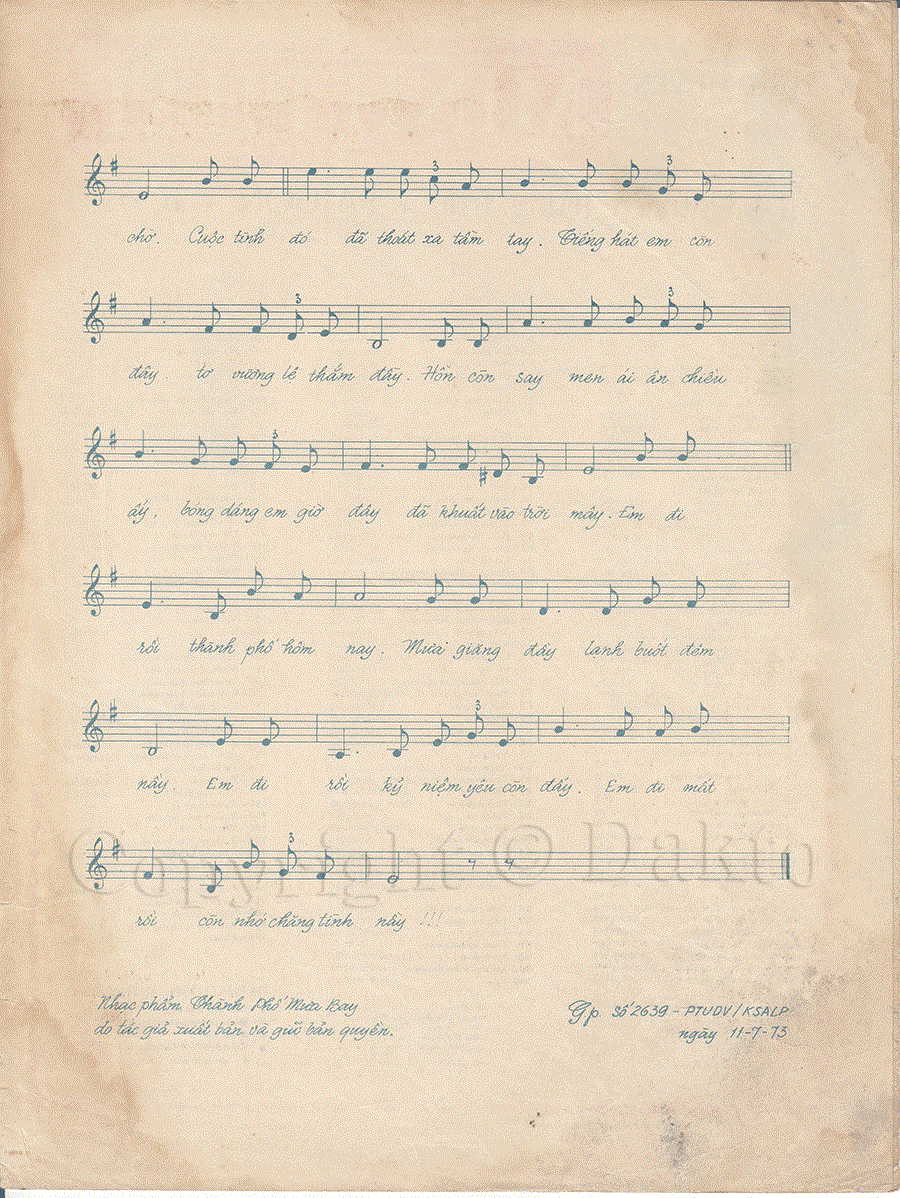 chờ. Cuộc tình đó đã thoát xa tầm tay. Tiếng hát em còn
đây tơ vương lê thắm đầy. Hồn còn say men ái ân chiều
ấy, bóng dáng em giờ đây đã khuất vào trời mây. Em đi
rồi thành phố hôm nay. Mưa giăng đầy lạnh buốt đêm
nầy. Em đi rồi kỷ niệm yêu còn đấy. Em đi mất
rồi còn nhớ chăng tình nầy !!!
Copyright © Dakto
Nhạc phẩm Thành Phố Mưa Bay
do tác giả xuất bản và giữ bản quyền.
Gp. Số 2639 - PTUDV/KSALP
ngày 11-7-73